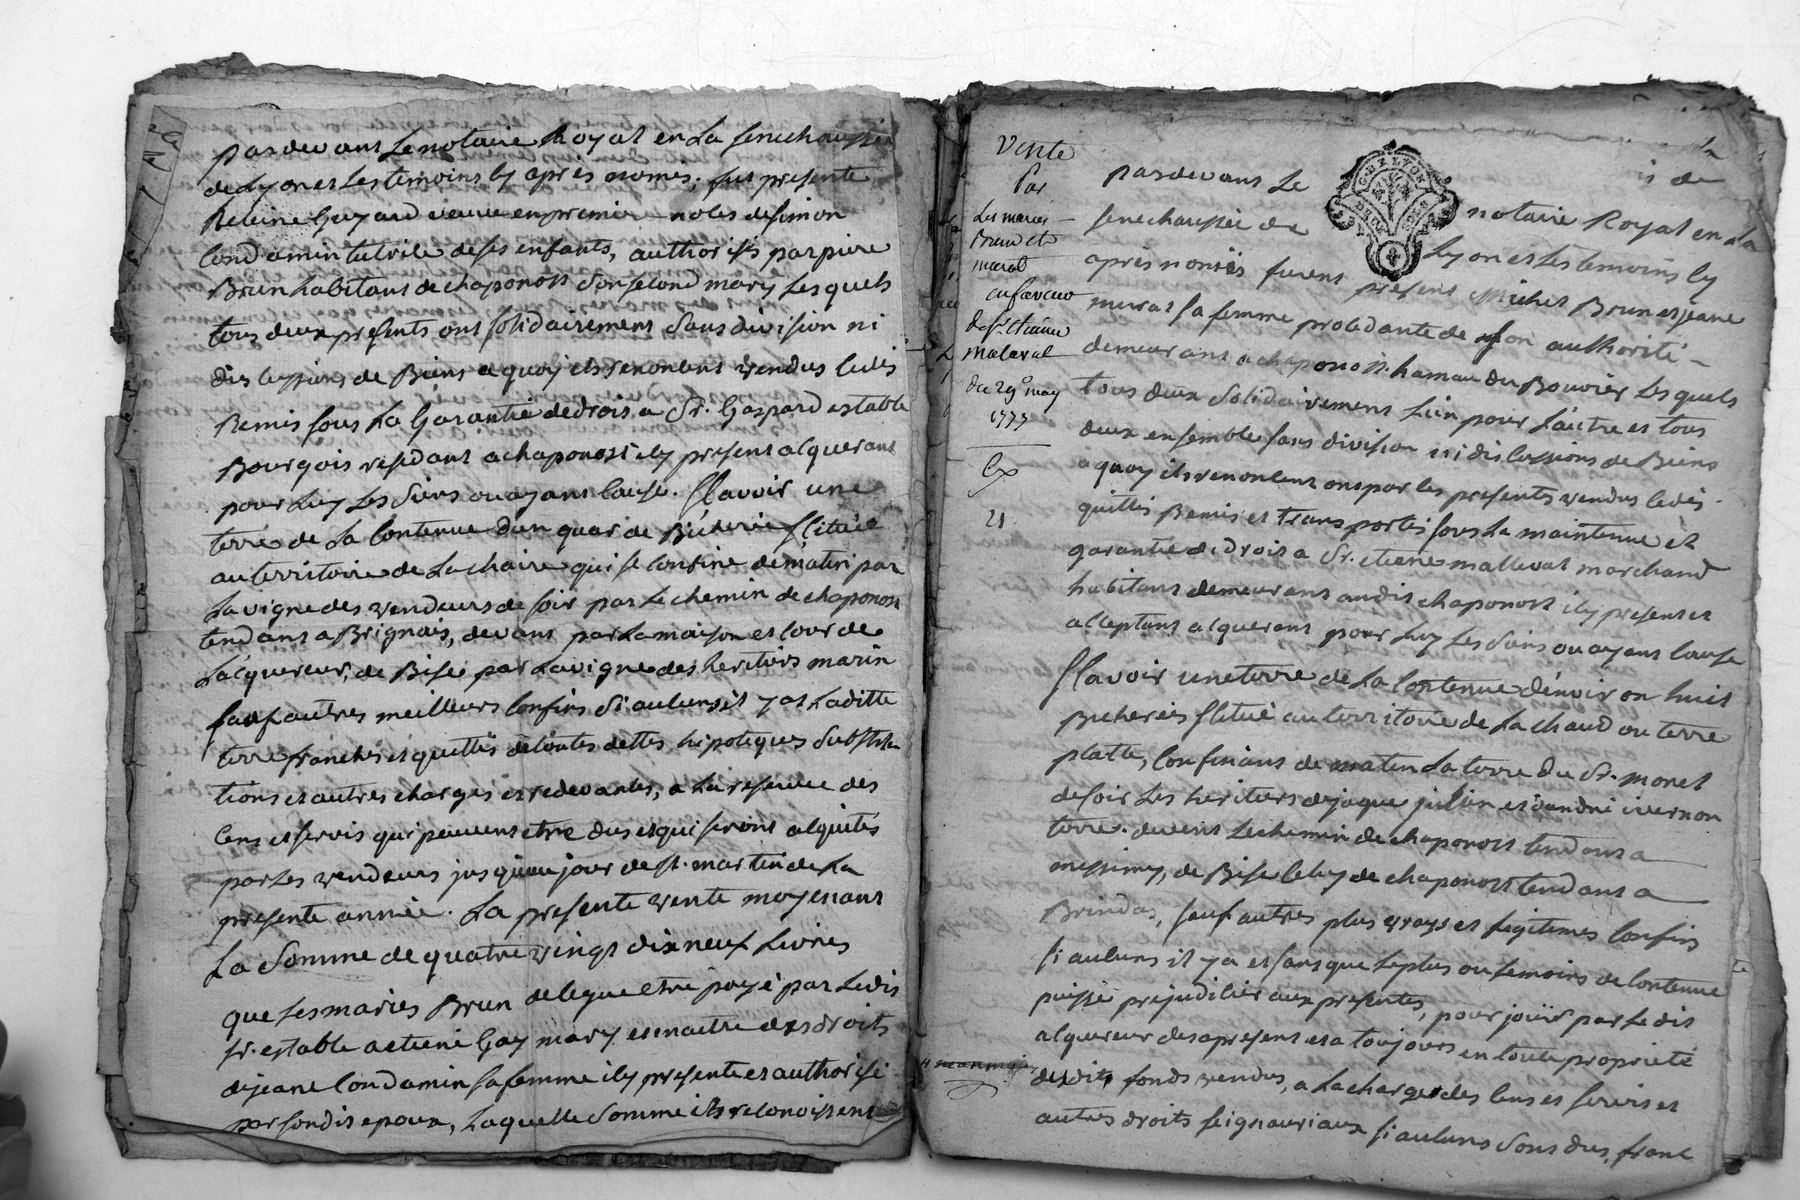 pardevant Le notaire Royal en La senechaussée
de Lyon et Les temoins cy après només, fut presente
Releine Guyard veuve en premiere noles de simon
Condamin tutrile de ses enfants, authorisés par pière
Brun habitant de chaponost son second mary Lesquels
tous deux presents ont solidairement sans division ni
discussions de Biens a quoy ils renoncent vendus cedés
Remis sous La Garantie de drois a Sr. Gaspard estable
Bourgois residant a chaponost icy present alquerant
pour Luy Les siens ou ayant cause. Sçavoir une
terre de La Contenue d'un quar de Bicherie scituée
au territoire de La chaire qui se confine de matin par
La vigne des vendeurs de soir par Le chemin de chaponost
tendant a Brignais, devant par La maison et cour de
L'acquereur, de Bise par La vigne des heritiers marin
sauf autres meilleurs confins si aulunsil y at Laditte
terre franche et quitte de toutes dettes hipoteques substitu
tions et autres charges et redevantes, a La reserve des
cens et servis qui peuvent etre dus et qui seront alquités
par Les vendeurs jusqu'au jour de st. martin de La
presente année. La presente vente moyenant
La Somme de quatre vingt dix neuf Livres
que Les mariés Brun delegue etre payé par Ledit
sr. estable a etiene Gay mary et maitre des droits
de jeane Condamin sa femme icy presente et authorisé
par sondit epoux, Laquelle Somme ils reconoissent
Vente
Par
Les mariés
Brun et
murat
en faveur
de Sr. etienne
malaval
du 29e may
1777
21.
G. DE LYON
pardevant Le notaire Royal en La
senechaussée de Lyon et Les temoins cy
après només furent present Michel Brun et jeane
murat sa femme procedante de son authorité
demeurant a chaponost hameau du Bouvier Lesquels
tous deux Solidairement L'un pour L'autre et tous
deux ensemble sans division ni discussions de Biens
a quoy ils renoncent ont par les presentes vendus cedés
quittés Remis et transportés sous La maintenue et
garantie de drois a Sr. etiene mallaval marchand
habitant demeurant audit chaponost icy present et
alleptant alquerant pour Luy Les siens ou ayant cause
Sçavoir une terre de La Contenue d'environ huit
Bicherées scitué au territoire de La chaud ou terre
platte, Confinant de matin La terre du Sr. monet
de soir Les heritiers de jaque jullien et d'andré ivernon
terre. devent Le chemin de chaponost tendant a
messimy, de Bise Celuy de chaponost tendant a
Brindas, sauf autres plus vrays et legitimes confins
si auluns il y a et sans que Le plus ou Le moins de Contenue
puisse prejudicier aux presentes, pour joüir par Ledit
alquereur desapresent et a toujours en toute propriété
desdits fonds vendus, a La charge des cens et servis et
autres droits seigneuriaux si auluns sont dus, franc